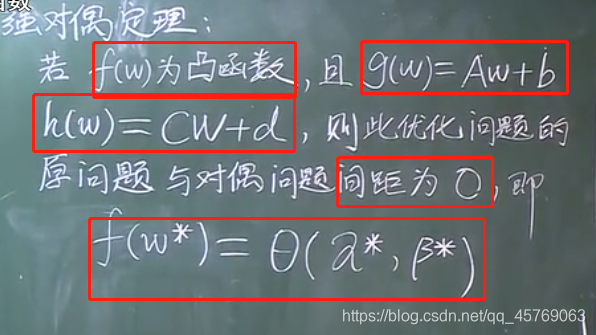 函数
强对偶定理:
若 f(w)为凸函数, 且 g(w)=Aw+b
h(w)=CW+d, 则此优化问题的
原问题与对偶问题间距为0, 即
f(w*)=θ(α*,β*)
https://blog.csdn.net/qq_45769063